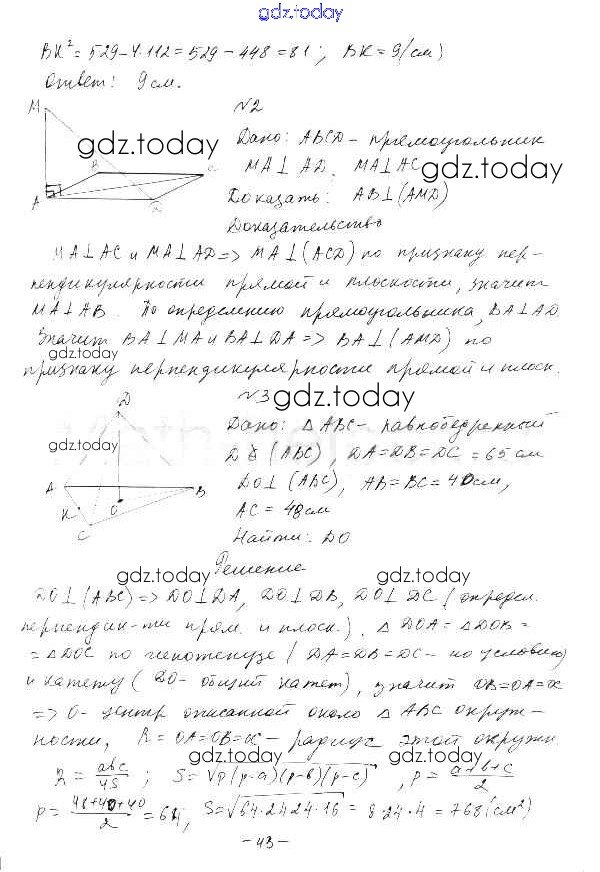 gdz.today
BK² = 529 - 4·112 = 529 - 448 = 81; BK = 9(см)
Ответ: 9см.
M
N2
gdz.today
Дано: ABCD - прямоугольник
B
C
gdz.today
MA⊥AD, MA⊥AC
A
D
Доказать: AB⊥(AMD)
Доказательство
MA⊥AC и MA⊥AD => MA⊥(ACD) по признаку пер-
пендикулярности прямой и плоскости, значит
MA⊥AB. По определению прямоугольника, BA⊥AD
Значит BA⊥MA и BA⊥DA => BA⊥(AMD) по
gdz.today
признаку перпендикулярности прямой и плоск.
N3
gdz.today
D
Дано: △ABC - равнобедренный
gdz.today
(ABC), DA=DB=DC=65 см
A
B
DO⊥(ABC), AB=BC=40см,
K
O
AC = 48см
C
Найти: DO
Решение
gdz.today
gdz.today
DO⊥(ABC) => DO⊥DA, DO⊥DB, DO⊥DC (определ.
перпендик-ти прям. и плоск.). △DOA = △DOB =
= △DOC по гипотенузе (DA=DB=DC - по условию)
и катету (DO - общий катет), значит OB=OA=OC
=> O - центр описанной около △ABC окруж-
ности, R = OA=OB=OC - радиус этой окружн
gdz.today
gdz.today
R = abc/4S ; S = √p(p-a)(p-b)(p-c) , p = a+b+c/2
p = 48+40+40/2 = 64, S = √64·24·24·16 = 8·24·4 = 768(см²)
- 43 -